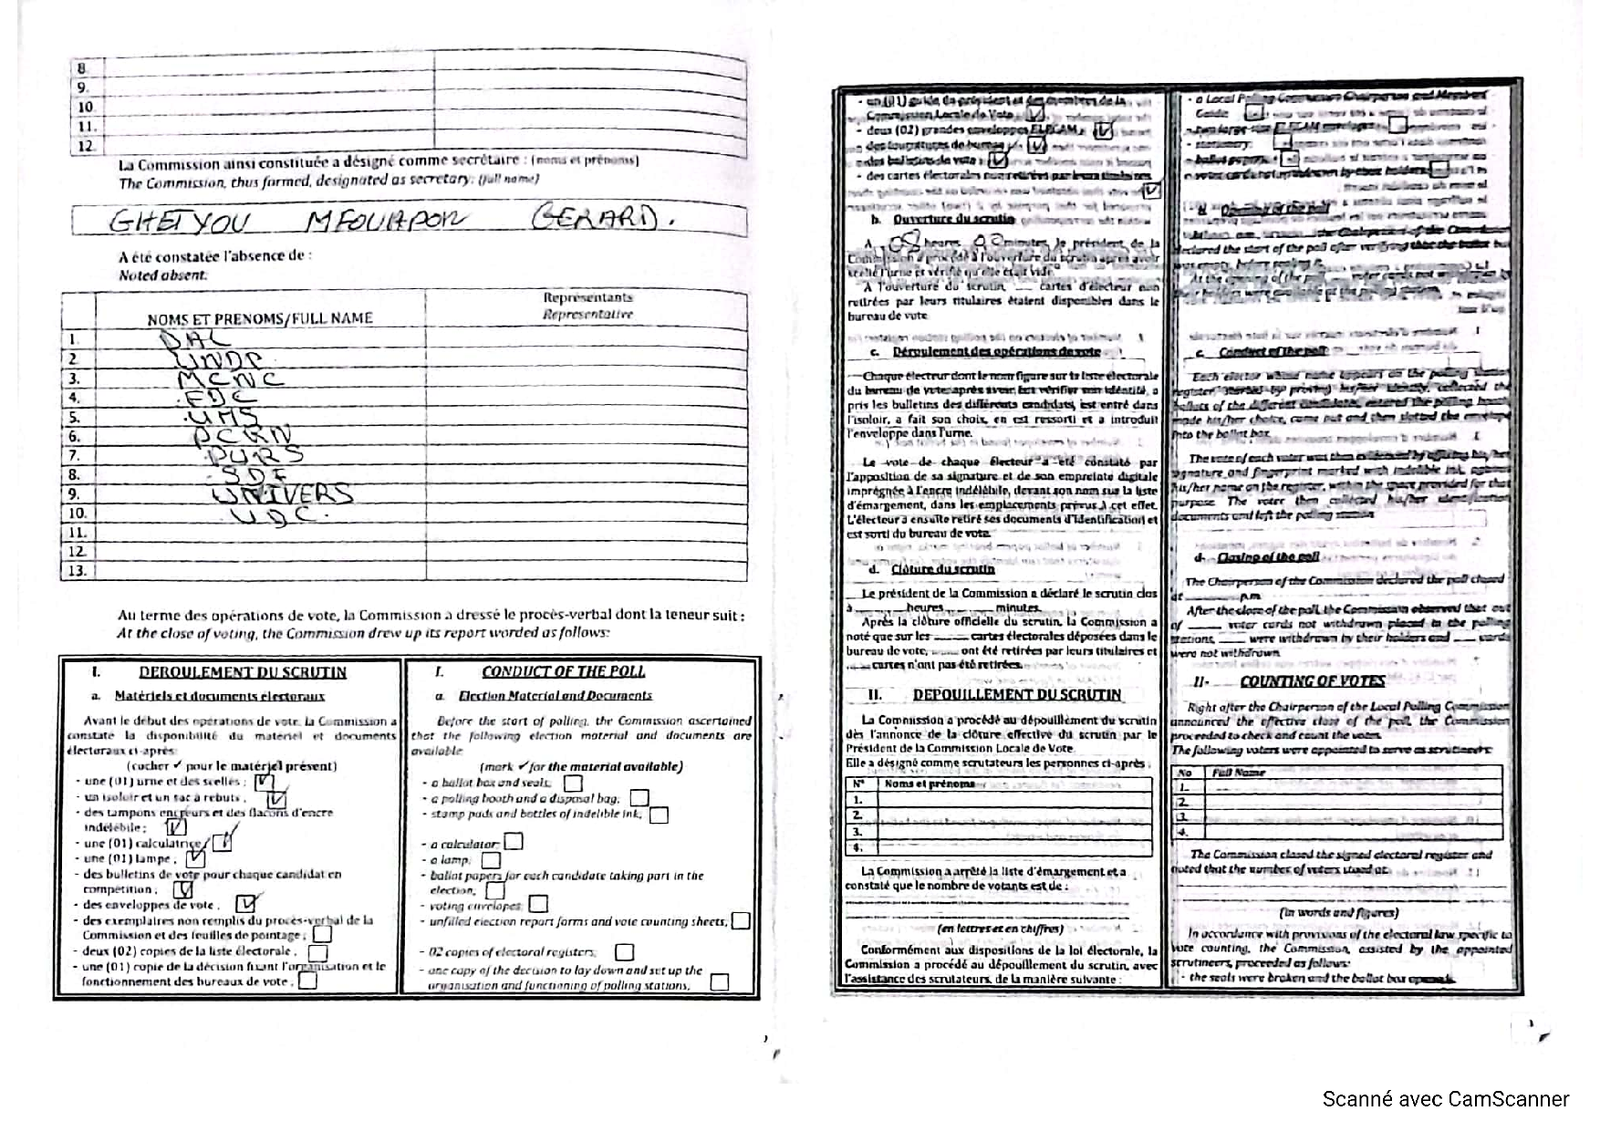 8.
9.
10.
11.
12.
La Commission ainsi constituée a désigné comme secrétaire : (noms et prénoms)
The Commission, thus formed, designated as secretary: (full name)
GHETYOU MFOUAPON GERARD.
A été constatée l'absence de :
Noted absent.
NOMS ET PRENOMS/FULL NAME
Représentants
Representative
1. PAL
2. UNDP
3. MCNC
4. FDC
5. UMS
6. PCRN
7. PURS
8. SDF
9. UNIVERS
10. UDC.
11.
12.
13.
Au terme des opérations de vote, la Commission a dressé le procès-verbal dont la teneur suit :
At the close of voting, the Commission drew up its report worded as follows:
I. DEROULEMENT DU SCRUTIN
a. Matériels et documents électoraux
Avant le début des opérations de vote, la Commission a
constaté la disponibilité du matériel et documents
électoraux ci-après:
(cocher ✓ pour le matériel présent)
- une (01) urne et des scellés ; ☑
- un isoloir et un sac à rebuts ; ☑
- des tampons encreurs et des flacons d'encre
indélébile ; ☑
- une (01) calculatrice ☑
- une (01) lampe ; ☑
- des bulletins de vote pour chaque candidat en
compétition ; ☑
- des enveloppes de vote ; ☑
- des exemplaires non remplis du procès-verbal de la
Commission et des feuilles de pointage ; ☐
- deux (02) copies de la liste électorale ; ☐
- une (01) copie de la décision fixant l'organisation et le
fonctionnement des bureaux de vote ; ☐
I. CONDUCT OF THE POLL
a. Election Material and Documents
Before the start of polling, the Commission ascertained
that the following election material and documents are
available
(mark ✓ for the material available)
- a ballot box and seals; ☐
- a polling booth and a disposal bag; ☐
- stamp pads and bottles of indelible ink; ☐
- a calculator ☐
- a lamp; ☐
- ballot papers for each candidate taking part in the
election; ☐
- voting envelopes ☐
- unfilled election report forms and vote counting sheets; ☐
- 02 copies of electoral registers; ☐
- one copy of the decision to lay down and set up the
organisation and functioning of polling stations; ☐
- un (01) guide du président et des membres de la
Commission Locale de Vote ☑
- deux (02) grandes enveloppes ELECAM ; ☑
- des fournitures de bureau ; ☑
- des bulletins de vote ; ☑
- des cartes électorales non retirées par leurs titulaires
☑
b. Ouverture du scrutin
A 08 heures 02 minutes, le président de la
Commission a procédé à l'ouverture du scrutin après avoir
scellé l'urne et vérifié qu'elle était vide
A l'ouverture du scrutin, ___ cartes d'électeur non
retirées par leurs titulaires étaient disponibles dans le
bureau de vote
c. Déroulement des opérations de vote
Chaque électeur dont le nom figure sur la liste électorale
du bureau de vote après avoir fait vérifier son identité, a
pris les bulletins des différents candidats, est entré dans
l'isoloir, a fait son choix, en est ressorti et a introduit
l'enveloppe dans l'urne.
Le vote de chaque électeur a été constaté par
l'apposition de sa signature et de son empreinte digitale
imprégnée à l'encre indélébile, devant son nom sur la liste
d'émargement, dans les emplacements prévus à cet effet.
L'électeur a ensuite retiré ses documents d'identification et
est sorti du bureau de vote.
d. Clôture du scrutin
Le président de la Commission a déclaré le scrutin clos
à ______ heures ______ minutes.
Après la clôture officielle du scrutin, la Commission a
noté que sur les ______ cartes électorales déposées dans le
bureau de vote, ______ ont été retirées par leurs titulaires et
______ cartes n'ont pas été retirées.
II. DEPOUILLEMENT DU SCRUTIN
La Commission a procédé au dépouillement du scrutin
dès l'annonce de la clôture effective du scrutin par le
Président de la Commission Locale de Vote
Elle a désigné comme scrutateurs les personnes ci-après :
N° Noms et prénoms
1.
2.
3.
4.
La Commission a arrêté la liste d'émargement et a
constaté que le nombre de votants est de :
(en lettres et en chiffres)
Conformément aux dispositions de la loi électorale, la
Commission a procédé au dépouillement du scrutin, avec
l'assistance des scrutateurs, de la manière suivante :
- a Local Polling Commission Chairperson and Members'
Guide ☐
- two large size ELECAM envelopes ☐
- stationery;
- ballot papers;
- voter cards not withdrawn by their holders
Opening of the poll
the Chairperson of the Commission
declared the start of the poll after verifying that the ballot box
was empty, before sealing it.
c. Conduct of the poll
Each elector whose name appears on the polling station
register, started by proving his/her identity, collected the
ballots of the different candidates, entered the polling booth,
made his/her choice, came out and then slotted the envelope
into the ballot box.
The vote of each voter was then evidenced by affixing his/her
signature and fingerprint marked with indelible ink, against
his/her name on the register, within the space provided for that
purpose. The voter then collected his/her identification
documents and left the polling station
d- Closing of the poll
The Chairperson of the Commission declared the poll closed
at ______ p.m
After the close of the poll, the Commission observed that out
of ______ voter cards not withdrawn placed in the polling
stations, ____ were withdrawn by their holders and ____ cards
were not withdrawn.
II- COUNTING OF VOTES
Right after the Chairperson of the Local Polling Commission
announced the effective close of the poll, the Commission
proceeded to check and count the votes.
The following voters were appointed to serve as scrutineers:
No Full Name
1.
2.
3.
4.
The Commission closed the signed electoral register and
noted that the number of voters stood at:
(in words and figures)
In accordance with provisions of the electoral law specific to
vote counting, the Commission, assisted by the appointed
scrutineers, proceeded as follows:
- the seals were broken and the ballot box opened.
Scanné avec CamScanner